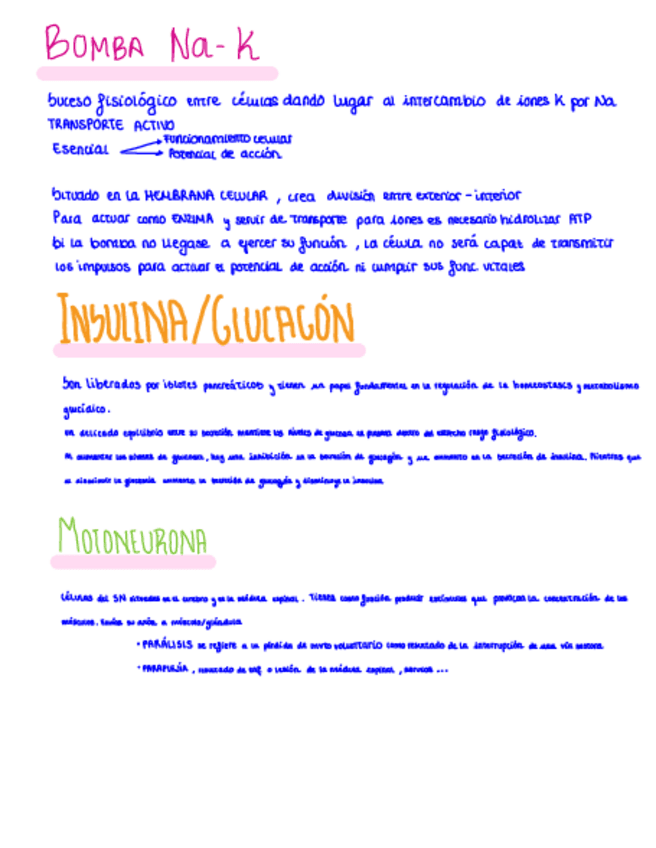 BOMBA Na-K
Suceso fisiológico entre células dando lugar al intercambio de iones K por Na
TRANSPORTE ACTIVO
Esencial
Funcionamiento celular
Potencial de acción
Situado en la MEMBRANA CELULAR, crea división entre exterior-interior
Para actuar como ENZIMA y servir de transporte para iones es necesario hidrolizar ATP
Si la bomba no llegase a ejercer su función, la célula no será capaz de transmitir
los impulsos para activar el potencial de acción ni cumplir sus func. vitales
INSULINA/GLUCAGÓN
Son liberados por islotes pancreáticos y tienen un papel fundamental en la regulación de la homeostasis y metabolismo
glucídico.
Un delicado equilibrio entre su secreción mantiene los niveles de glucosa en plasma dentro del estrecho rango fisiológico.
Al aumentar los niveles de glucosa, hay una inhibición en la secreción de glucagón y un aumento en la secreción de insulina. Mientras que
si disminuye la glucemia aumenta la secreción de glucagón y disminuye la insulina
MOTONEURONA
Células del SN situadas en el cerebro y en la médula espinal. Tienen como función producir estímulos que provocan la contracción de los
músculos. Envían su axón a músculo/glándula
• PARÁLISIS se refiere a la pérdida de mvto voluntario como resultado de la interrupción de una vía motora
• PARAPLEJÍA, resultado de enf. o lesión de la médula espinal, nervios ...